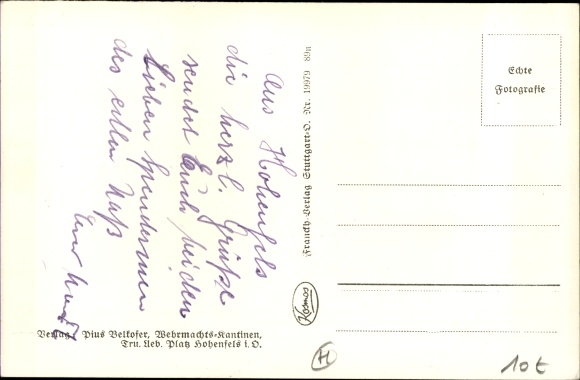 Aus Hohenfels
die herzl. Grüße
sendet Euch beiden
lieben Spenderinnen
des edlen Naß
Euer
Franckh-Verlag Stuttgart-O. Nr. 19979 89n
Echte
Fotografie
Verlag: Pius Belkofer, Wehrmachts-Kantinen,
Tru. Ueb. Platz Hohenfels i. O.
H
10 t